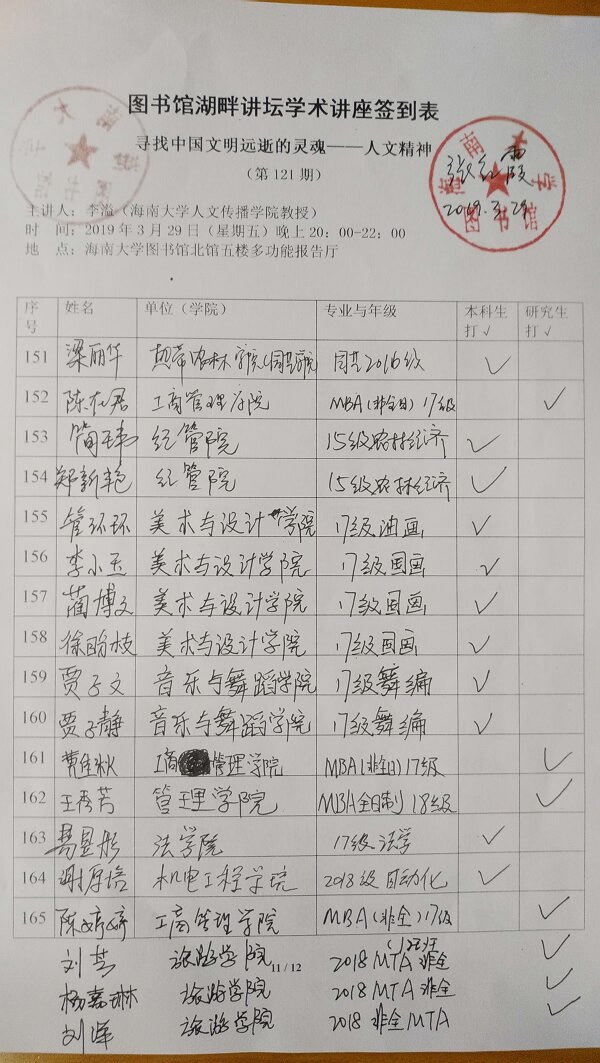 图书馆湖畔讲坛学术讲座签到表
寻找中国文明远逝的灵魂——人文精神
（第 121 期）
张红霞
2019.3.29
海南大学
图书馆
主讲人：李溢（海南大学人文传播学院教授）
时 间：2019 年 3 月 29 日（星期五）晚上 20：00-22：00
地 点：海南大学图书馆北馆五楼多功能报告厅
序号 姓名 单位（学院） 专业与年级 本科生打√ 研究生打√
151 梁丽华 热带农林学院(园艺学院 园艺2016级 √
152 工商管理学院 MBA(非全日)17级 √
153 简玮 经管院 15级农林经济 √
154 郑新艳 经管院 15级农林经济 √
155 管环环 美术与设计学院 17级油画 √
156 李小玉 美术与设计学院 17级国画 √
157 蔺博文 美术与设计学院 17级国画 √
158 徐盼枝 美术与设计学院 17级国画 √
159 贾子文 音乐与舞蹈学院 17级舞编 √
160 贾子静 音乐与舞蹈学院 17级舞编 √
161 工商管理学院 MBA(非全日)17级 √
162 王秀芳 管理学院 MBA全日制 18级 √
163 易昱彤 法学院 17级法学 √
164 谢厚培 机电工程学院 2018级自动化 √
165 陈婷婷 工商管理学院 MBA(非全)17级 √
刘芸 旅游学院 2018 MTA 非全 √
11 / 12
杨嘉琳 旅游学院 2018 MTA 非全 √
刘洋 旅游学院 2018 非全MTA √